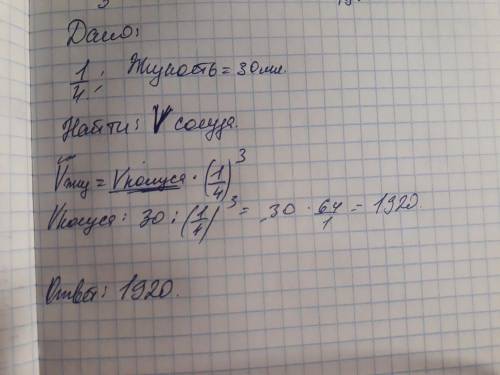 Дано:
1/4; Жидкость = 30 мл.
Найти: V сосуда.
Vжи = Vконуса · (1/4)^3
Vконуса: 30 : (1/4)^3 = 30 · 64/1 = 1920.
Ответ: 1920.